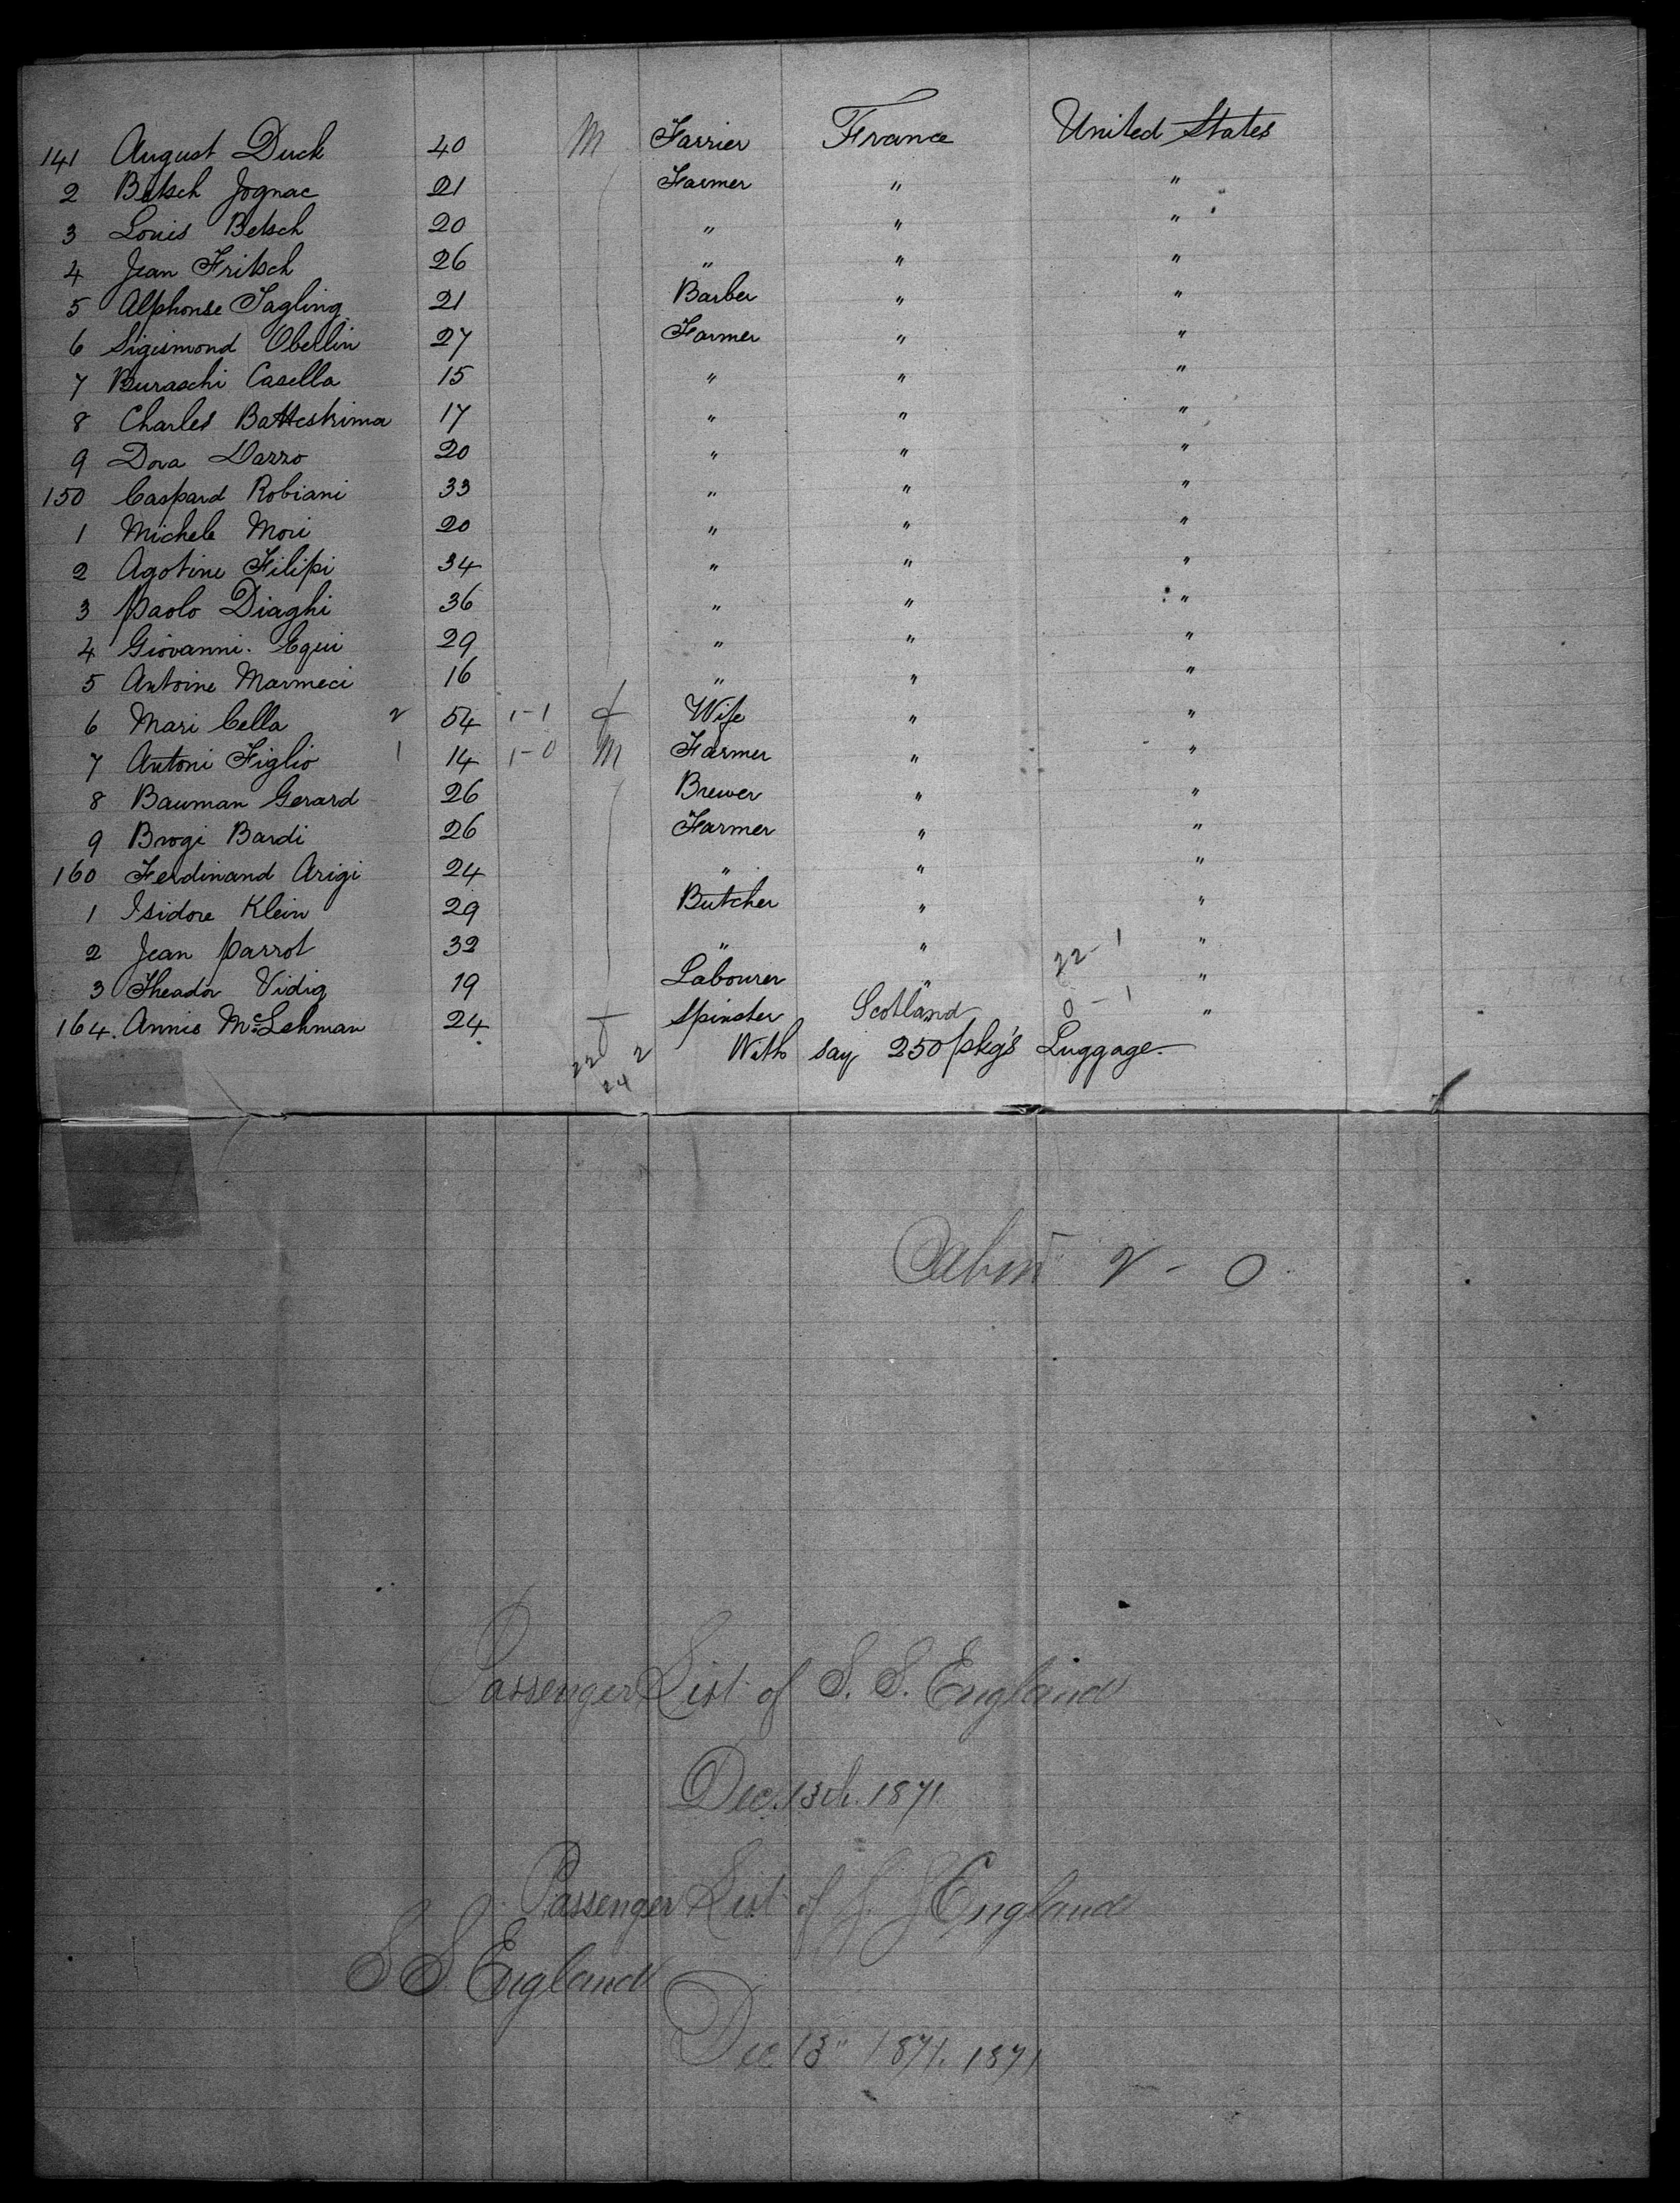 141 August Duck 40 M Farrier France United States
2 Betsch Jognac 21 Farmer " "
3 Louis Betsch 20 " " "
4 Jean Fritsch 26 " " "
5 Alphonse Tagling 21 Barber " "
6 Sigismond Oberlin 27 Farmer " "
7 Buraschi Casella 15 " " "
8 Charles Battestrima 17 " " "
9 Dova Darro 20 " " "
150 Caspard Robiani 33 " " "
1 Michele Mori 20 " " "
2 Agotine Filipi 34 " " "
3 Paolo Diaghi 36 " " "
4 Giovanni. Equi 29 " " "
5 Antoine Marmeci 16 " " "
6 Mari Cella 2 54 1-1 f Wife " "
7 Antoni Figlio 1 14 1-0 M Farmer " "
8 Bauman Gerard 26 Brewer " "
9 Brogi Bardi 26 Farmer " "
160 Ferdinand Arigi 24 " " "
1 Isidore Klein 29 Butcher " "
2 Jean Parrot 32 " " 22-1 "
3 Theador Vidig 19 Labourer " "
164. Annie McLehman 24 f Spinster Scotland 0-1 "
22 2 With say 250 pkg's Luggage.
24
Cabin 2 - 0
Passenger List of S. S. England
Dec. 13th. 1871
Passenger List of S. S England
S S England
Dec 13" 1871. 1871